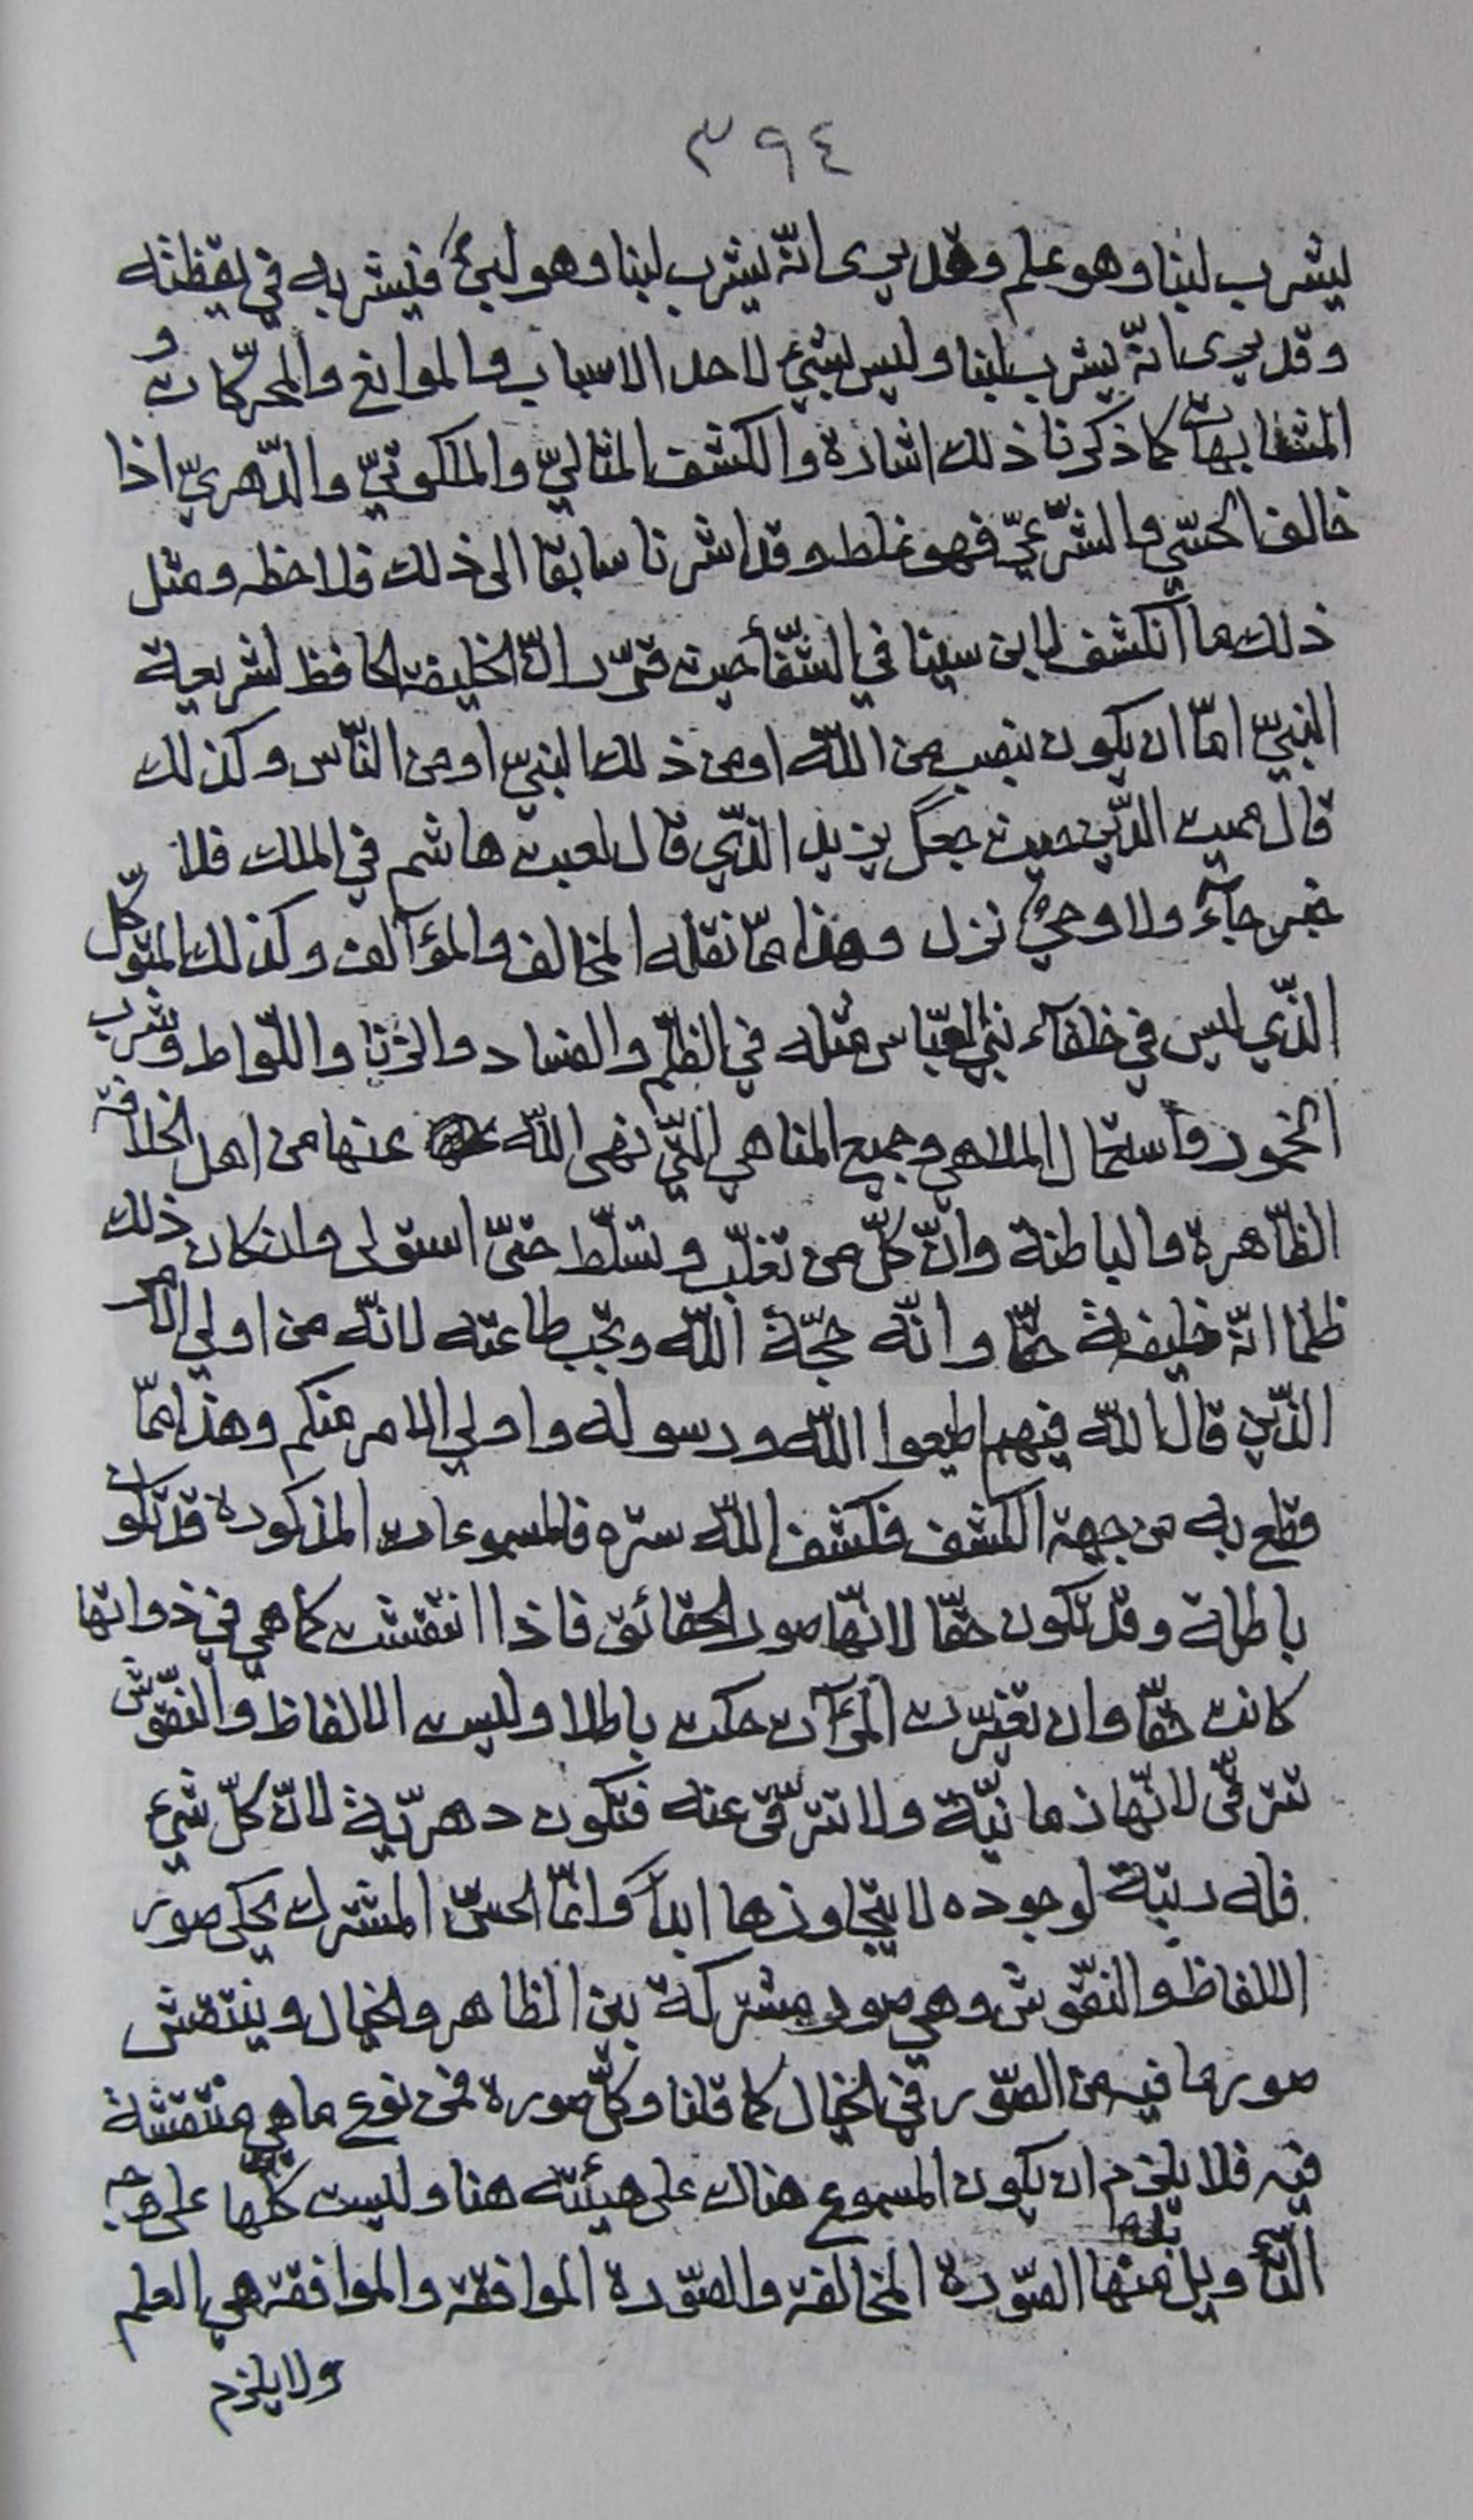 ٣٩٤
يشرب لبنا وهو علم وقد يرى انّه يشرب لبنا وهو لبنٌ فيشربه في يقظته
وقد يرى انّه يشرب لبنا وليس بشيء لاحد الاسباب والموانع والمحرّكات و
المتشابهات كما ذكرنا ذلك اشارة والكشف المثاليّ والملكوتيّ والدّهريّ اذا
خالف الحسّي والشّرعيّ فهو غلط وقد اشرنا سابقا الى ذلك فلاحظه ومثل
ذلك ما انكشف لابن سينا في الشّفأ حيث قرّر انّ الخليفة الحافظ لشريعة
النبيّ امّا ان يكون بنصب من اللّه او من ذلك النبيّ او من النّاس وكذلك
قال مميت الدّين حيث جعل يزيد الذّي قال لعبت هاشم في الملك فلا
خبر جآءَ ولا وحيٌ نزل وهذا ممّا نقله المخالف والمؤالف وكذلك المتوكّل
الذّي ليس في خلفآء بني العبّاس مثله في الظّلم والفساد والزّنا واللّواط وشرب
الخمور واستعمال الملاهي وجميع المناهي التّي نهى اللّه عنها من اهل الخلافة
الظّاهرة والباطنة وانّ كلّ من تغلّب وتسلّط حتّى استولى وان كان ذلك
ظلما انّه خليفة حقّا وانّه حجّة اللّه وتجب طاعته لانّه من اولي الامر
الذّين قال اللّه فيهم اطيعوا اللّه ورسوله واولي الامر منكم وهذا ممّا
قطع به من جهة الكشف فكشف اللّه ستره فالمسموعات المذكورة قد تكون
باطلة وقد تكون حقّا لانّها صور الحقائق فاذا انتقشت كما هي في ذواتها
كانت حقّا وان تغيّرت المرآت حكت باطلا وليست الالفاظ والنقّوش
تترقّى لانّها زمانيّة ولا تترقّى عنه فتكون دهريّة لانّ كلّ شيء
فله رتبة لوجوده لا يتجاوزها ابداً وانّما الحسّ المشترك يحكى صور
الالفاظ والنقّوش وهي صور مشتركة بين الظاهر والخيال وينتقش
صور ما فيه من الصّور في الخيال كما قلنا وكلّ صورة فمن نوع ما هي منتقشة
فيه فلا يلزم ان يكون المسموع هناك على هيئته هنا وليست كلّها على وجه
التّأويل بل منها الصّورة المخالفة والصّورة الموافقة والموافقة هي العلم
ولا يلزم